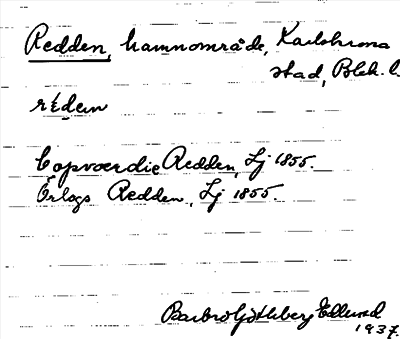 Redden, hamnområde, Karlskrona
stad, Blek. l.
Copvoerdie Redden, Lj 1855.
Örlogs Redden, Lj 1855.
Barbro Götheberg Edlund
1937.